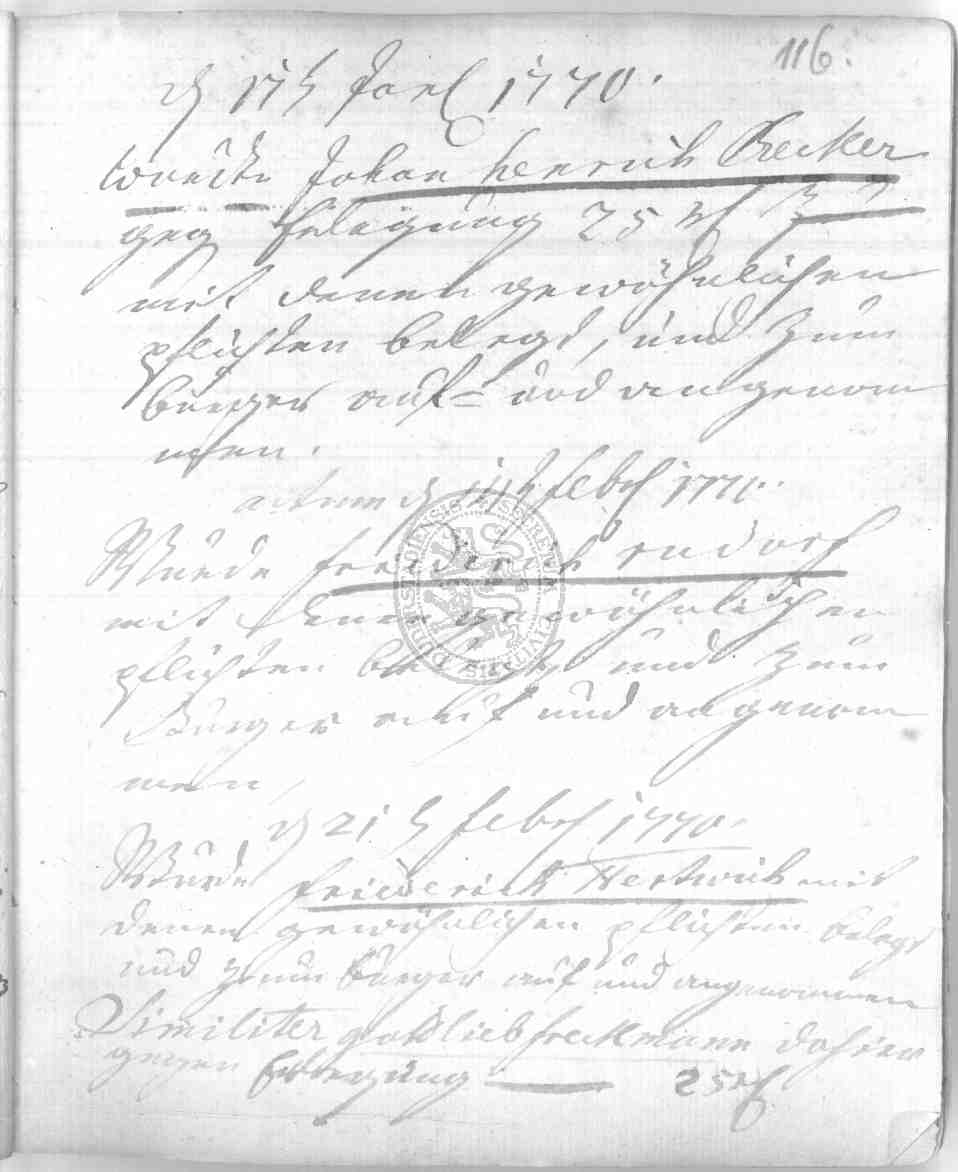 116.
d 17 t Janl 1770.
wurde Johan henrich Becker
geg Erlegung 25 rf
mit denen gewöhnlichen
pflichten belegt, und zum
bürger auf= und angenom
men.
actum d febr 1770.
Wurde friederich rudorf
mit denen gewöhnlichen
pflichten belegt und zum
Bürger auf und angenom
men,
d 21 t febr 1770.
Wurde friederich Hertwich mit
denen gewöhnlichen pflichten belegt
und zum bürger auf und angenommen
Similiter gottlieb freckmann dahier
gegen Erlegung — 25 rf